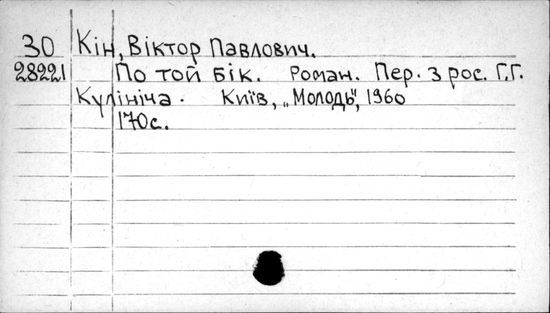 30 Кін, Віктор Павлович.
28221 По той бік. Роман. Пер. з рос. Г.Г.
Кулініча. Київ, „Молодь", 1960
170с.